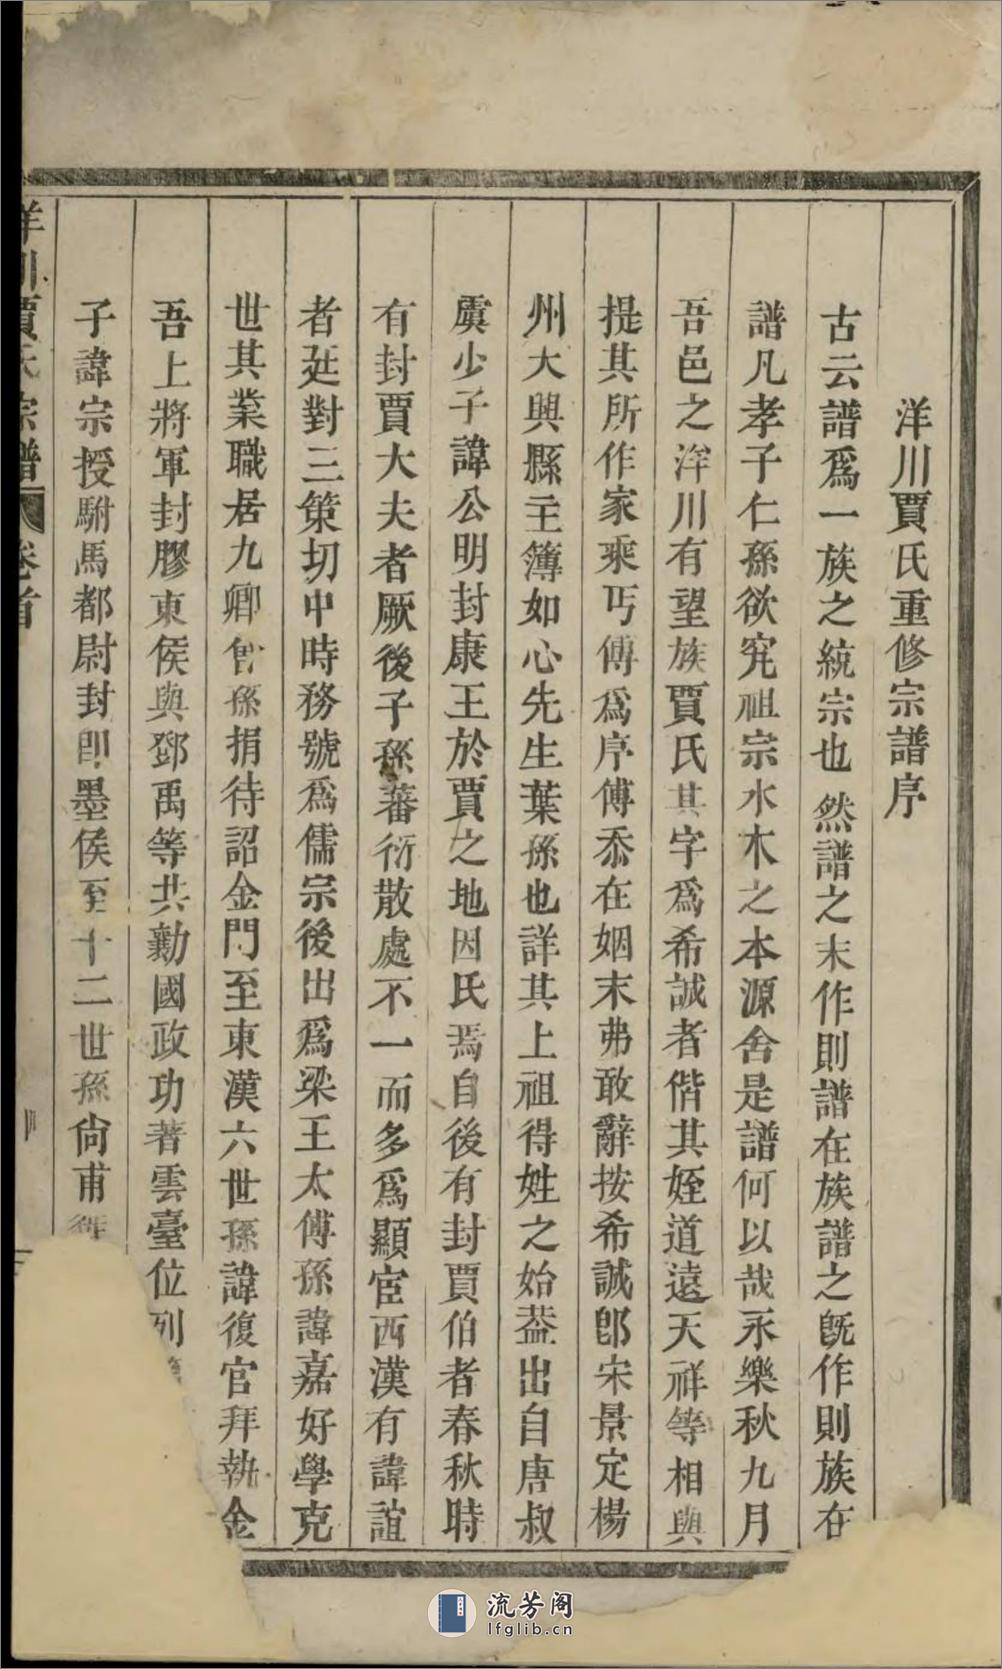 洋川賈氏重修宗譜序
古云譜爲一族之統宗也然譜之未作則譜在族譜之旣作則族在
譜凡孝子仁孫欲究祖宗水木之本源舍是譜何以哉永樂秋九月
吾邑之洋川有望族賈氏其字爲希誠者偕其姪道遠天祥等相與
提其所作家乘丐傅爲序傅忝在姻末弗敢辭按希誠郎宋景定楊
州大興縣主簿如心先生葉孫也詳其上祖得姓之始葢出自唐叔
虞少子諱公明封康王於賈之地因氏焉自後有封賈伯者春秋時
有封賈大夫者厥後子孫蕃衍散處不一而多爲顯宦西漢有諱誼
者廷對三策切中時務號爲儒宗後出爲梁王太傅孫諱嘉好學克
世其業職居九卿曾孫捐待詔金門至東漢六世孫諱復官拜執金
吾上將軍封膠東侯與鄧禹等共勷國政功著雲臺位列
子諱宗授駙馬都尉封卽墨侯至十二世孫尙甫
洋川賈氏宗譜 卷首
流芳阁
lfglib.cn